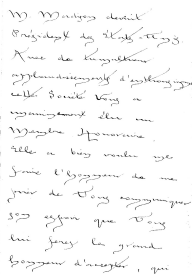 M Madison devint
Président des États Unis
Avec de
applaudissements d'enthousiasme
cette Société Vous a
unanimement élu un
Membre Honoraire.
Elle a bien voulu me
faire l'honneur de me
de Vous communiquer
son espoir que Vous
lui ferez le grand
honneur d'accepter, qui